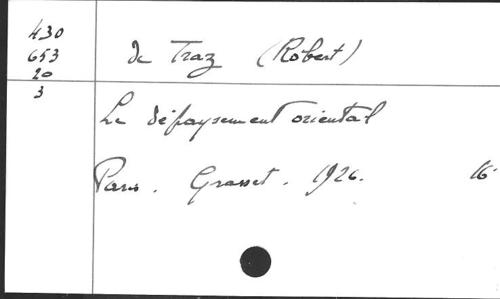 430
653
20
3
de Traz (Robert)
Le dépaysement oriental
Paris. Grasset. 1926. 16°